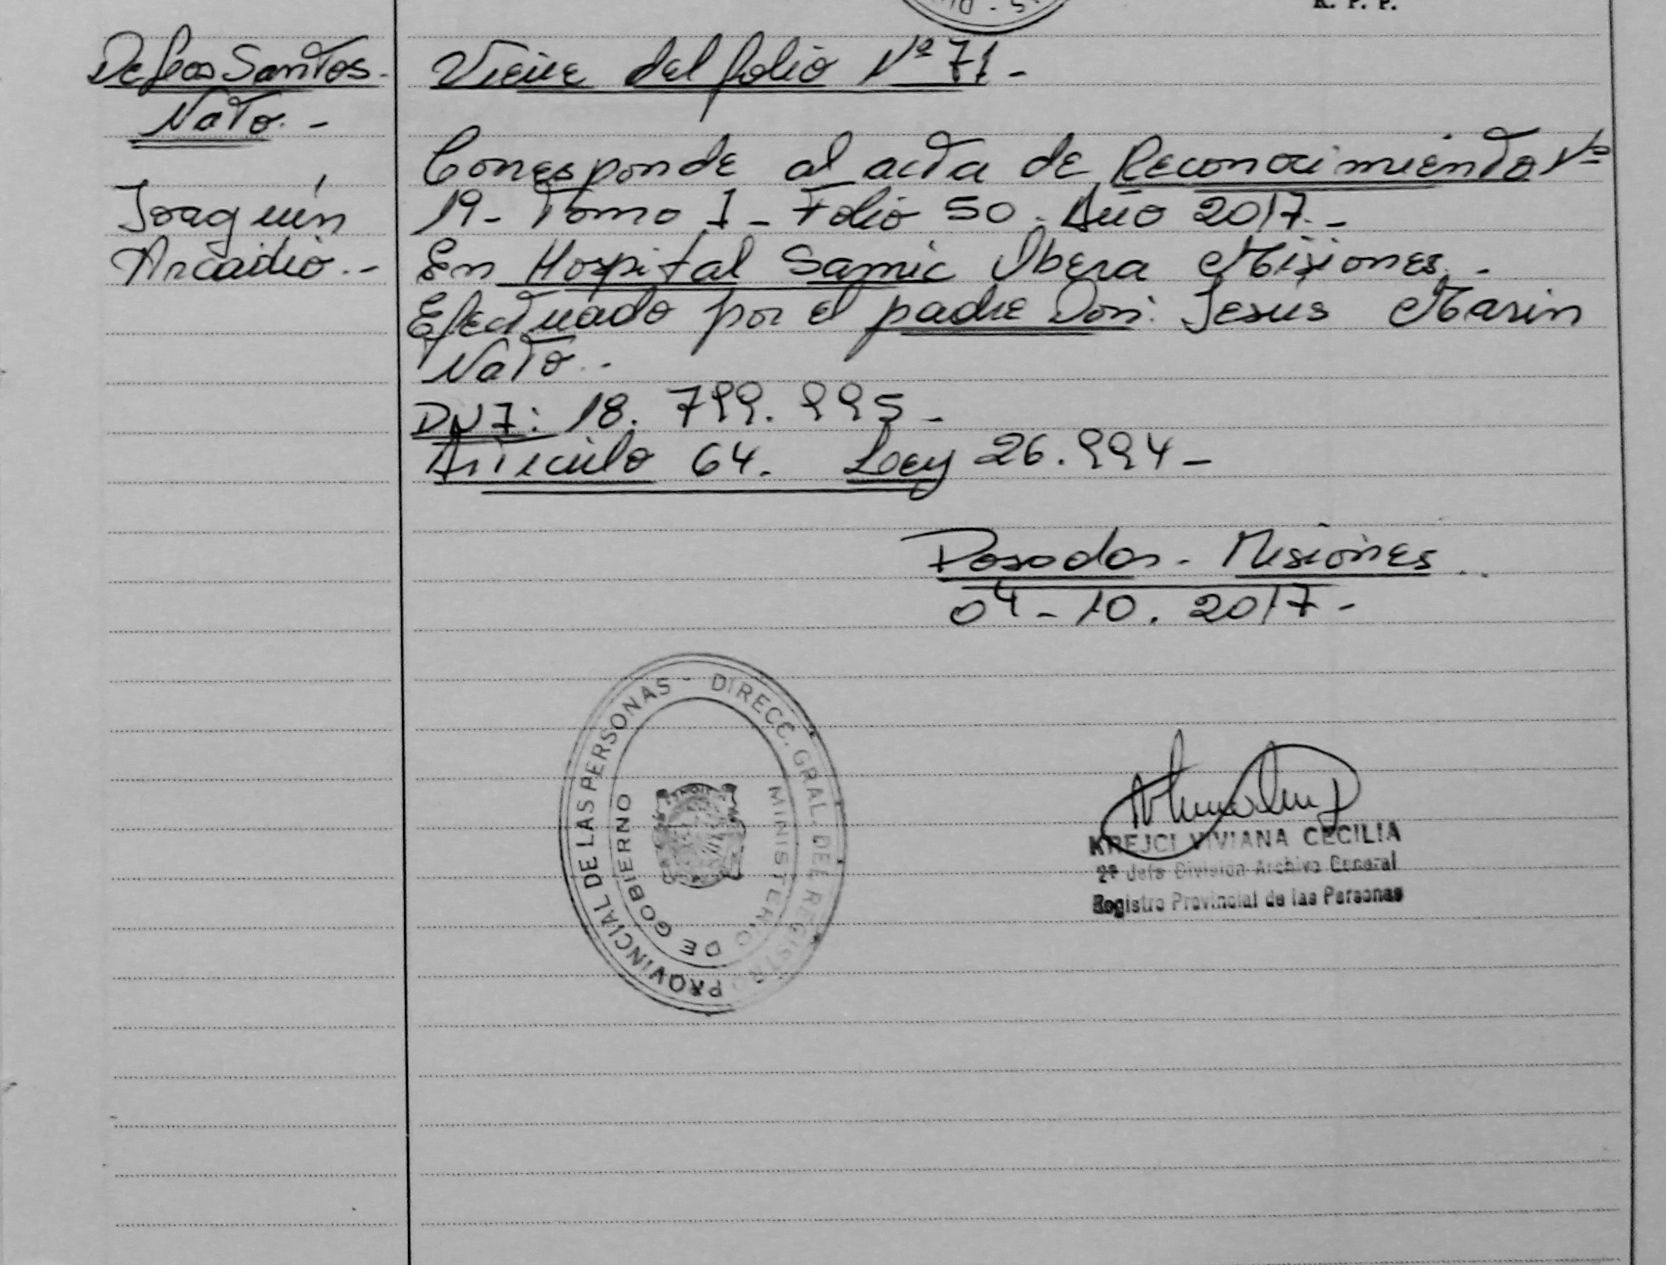 R. P. P.
De los Santos.
Nato. -
Joaquín
Arcadio. -
Viene del folio Nº 71 -
Corresponde al acta de Reconocimiento Nº
19 - Tomo I - Folio 50. Año 2017. -
En Hospital Samic Obera Misiones. -
Efectuado por el padre Don: Jesús Marin
Nato. -
DNI: 18.799.995 -
Articulo 64. Ley 26.994 -
Posadas - Misiones.
04 - 10. 2017 -
DIRECC. GRAL. DEL REGISTRO PROVINCIAL DE LAS PERSONAS -
MINISTERIO DE GOBIERNO
KREJCI VIVIANA CECILIA
2º Jefe División Archivo General
Registro Provincial de las Personas